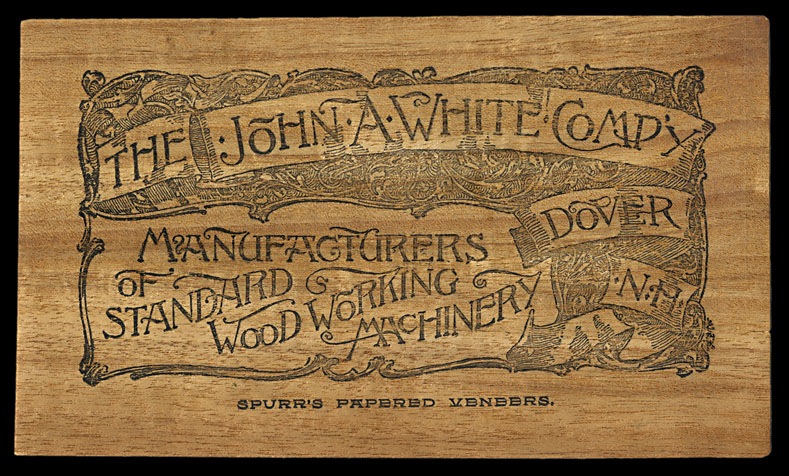 THE JOHN·A·WHITE·COMP'Y
DOVER
N.H.
MANUFACTURERS
OF STANDARD WOOD WORKING
MACHINERY
SPURR'S PAPERED VENEERS.